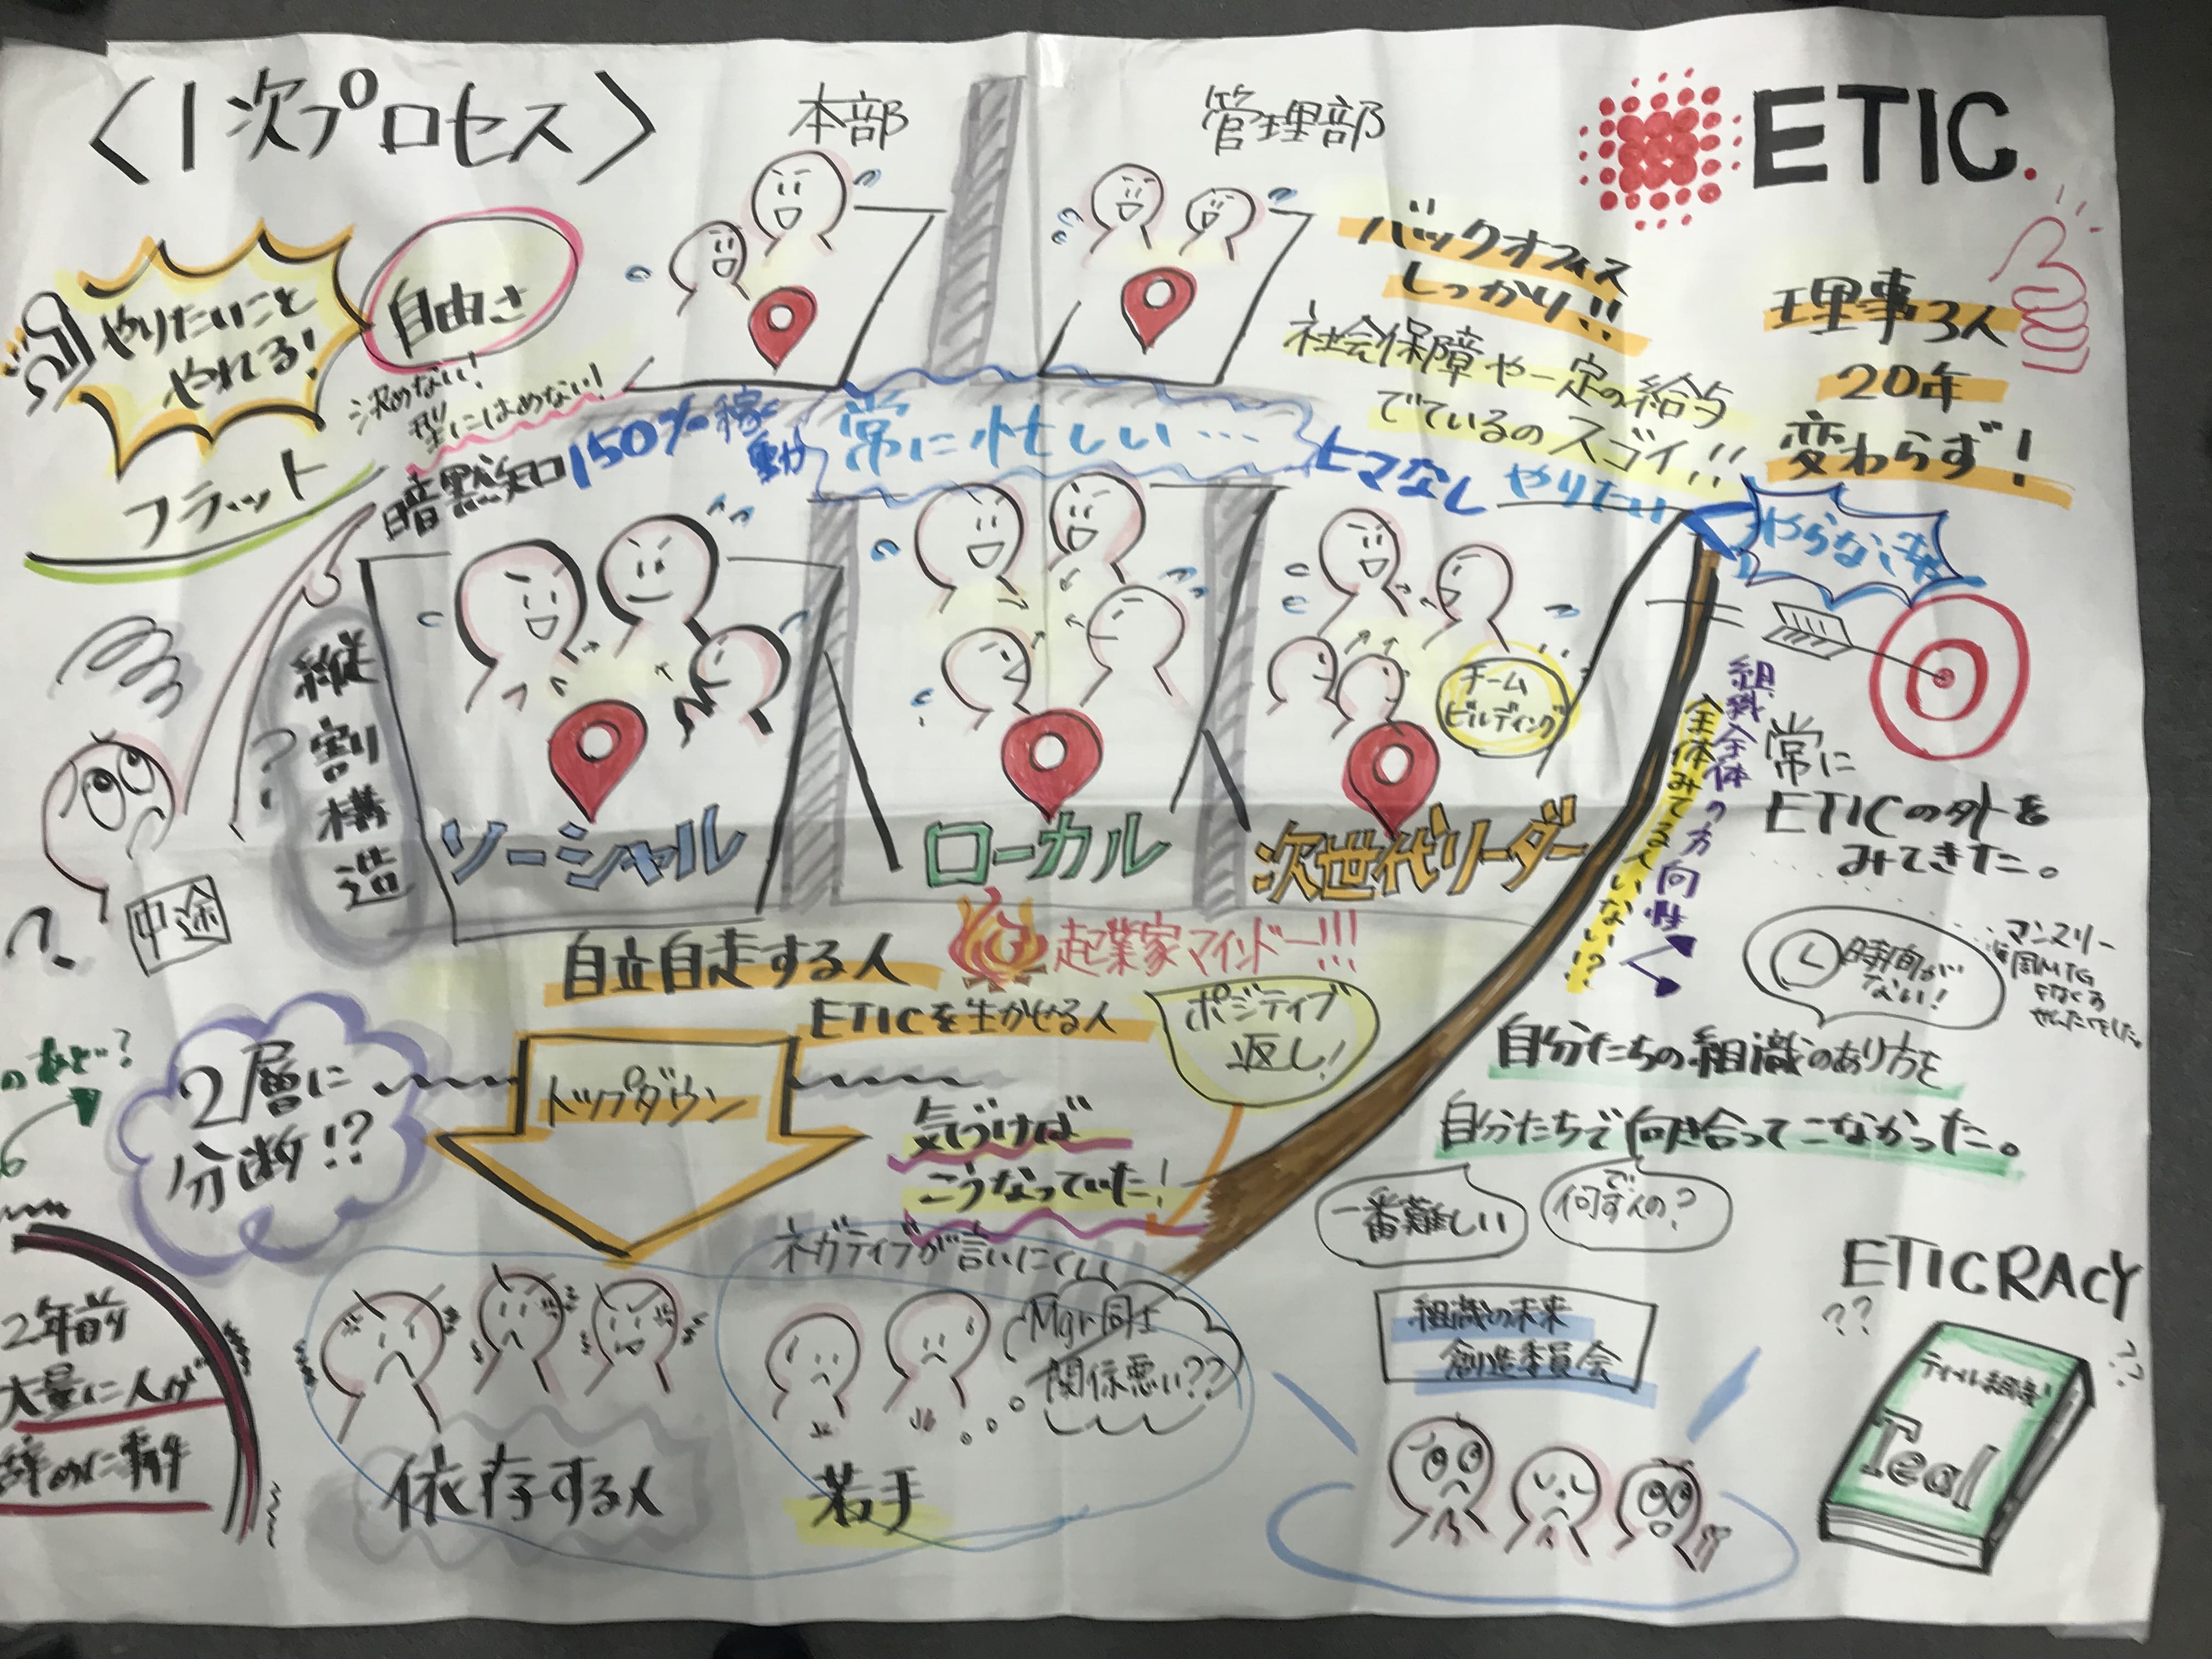 〈1次プロセス〉
本部
管理部
ETIC.
やりたいこと
やれる!
自由さ
決めない!
型にはめない!
フラット
暗黙知
150%稼働
常に忙しい…
ヒマなし
バックオフィス
しっかり!!
社会保障や一定の給与
でているのスゴイ!!
理事3人
20年
変わらず!
やりたい
縦割り構造
?
中途
ソーシャル
ローカル
次世代リーダー
チーム
ビルディング
組織全体の方向性
全体みてる人いない!?
常に
ETICの外を
みてきた。
時間が
ない!
マンスリー
自立自走する人
起業家マインドー!!!
ETICを生かせる人
ポジティブ
返し!
トップダウン
2層に
分断!?
気づけば
こうなっていた!
自分たちの組織のあり方を
自分たちで向き合ってこなかった。
一番難しい
で、
何すんの?
ネガティブが言いにくい
Mgr同士
関係悪い??
依存する人
若手
2年前
大量に人が
組織の未来
創造委員会
ETICRACY
??
??
ティール組織!
Teal